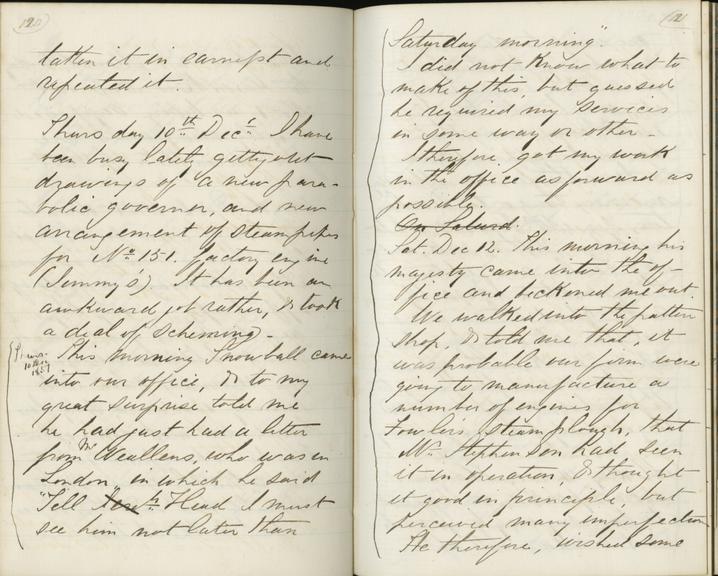 120
taken it in earnest and
repeated it.
Thursday 10th Decr. I have
been busy lately getting out
drawings of a new para-
bolic governor, and new
arrangement of steam pipes
for No. 151. factory engine
(Jemmy's) It has been an
awkward job rather, & took
a deal of scheming.
Thurs.
10 Dec
1857
This morning Snowball came
into our office, & to my
great surprise told me
he had just had a letter
from Mr Weallens, who was in
London, in which he said
"Tell Head I must
see him not later than
121
Saturday morning".
I did not know what to
make of this, but guessed
he required my services
in some way or other.
I therefore, got my work
in the office as forward as
possible.
On Saturd.
Sat. Dec 12. This morning his
majesty came into the of-
fice and beckoned me out.
We walked into the pattern
shop, & told me that, it
was probable our firm were
going to manufacture a
number of engines for
Fowlers steam plough, that
Mr. Stephenson had seen
it in operation, & thought
it good in principle, but
perceived many imperfections
He therefore, wished some